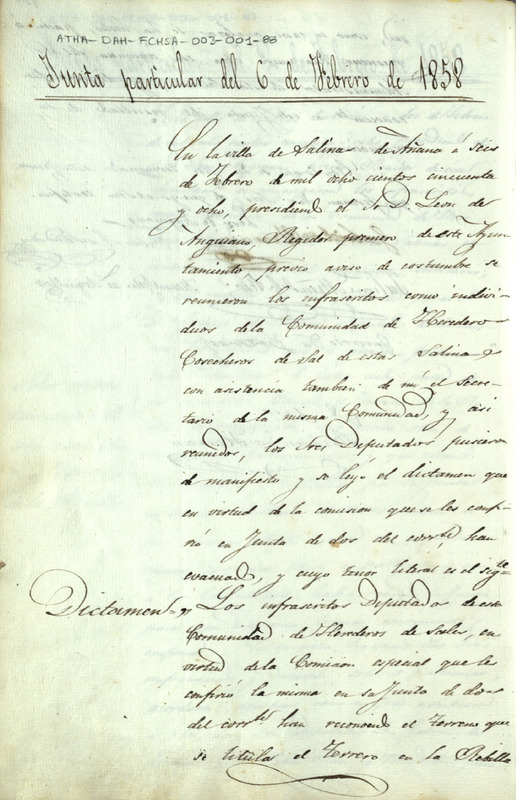 ATHA-DAH-FCHSA-003-001-88
Junta particular del 6 de Febrero de 1858
En la villa de Salinas de Añana á Seis
de Febrero de mil ocho cientos cincuenta
y ocho, presidiendo el Sr D. Leon de
Anguiano Regidor primero de este Ayun-
tamiento, previo aviso de costumbre se
reunieron los infrascritos como indivi-
duos de la Comunidad de Herederos
Cosecheros de Sal de estas Salinas
con asistencia tambien de mi el Secre-
tario de la misma Comunidad, y asi
reunidos, los Sres Deputados pusieron
de manifiesto y se leyó el dictamen que
en virtud de la comision que se les confi-
rió en Junta de dos del corrte han
evacuado, y cuyo tenor literal es el sigte
Dictamen Los infrascritos Deputados de esta
Comunidad de Herederos de Sales, en
virtud de la Comision especial que les
confirió la misma en su Junta de dos
del corrte han reconocido el terreno que
se titula el Terrero en la Rebilla